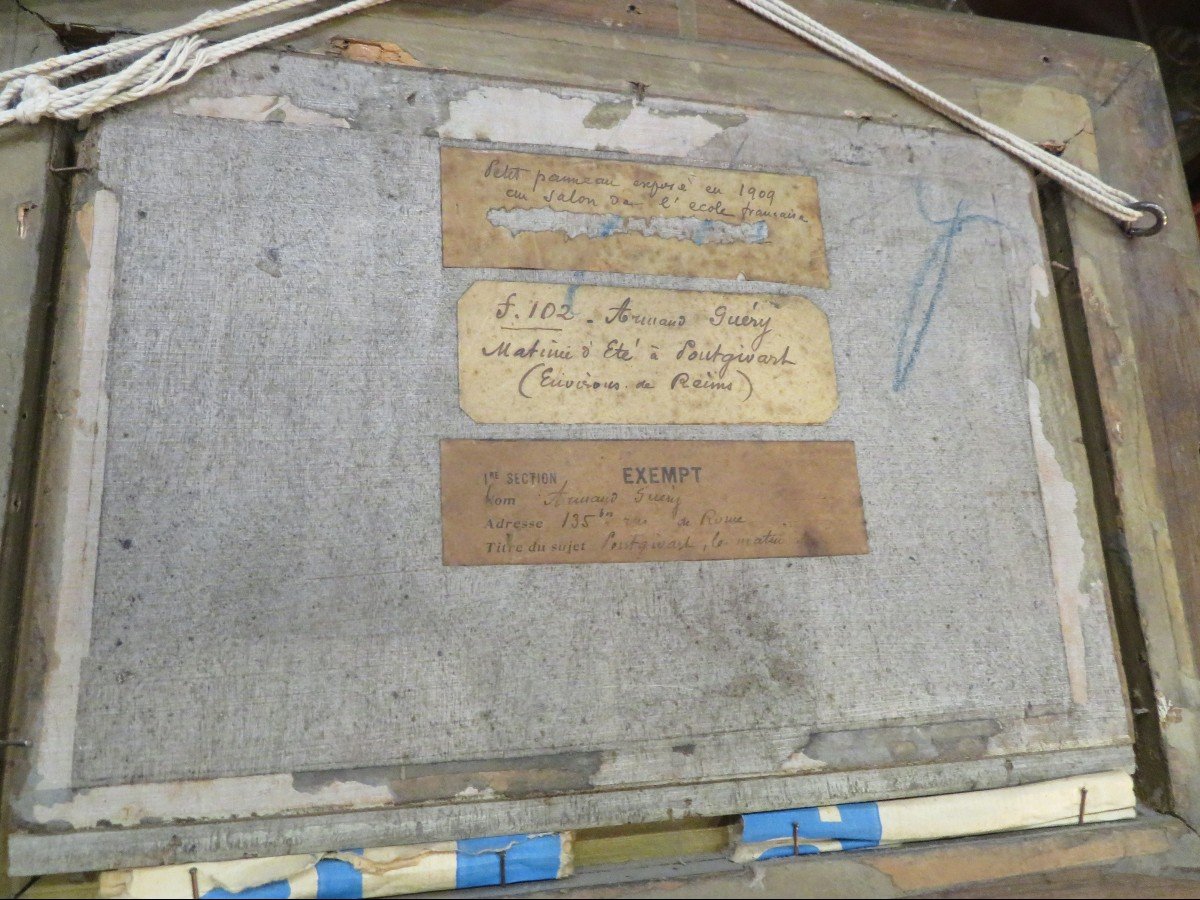 Petit panneau exposé en 1909
au Salon de l'école française
f. 102 - Armand Guéry
Matinée d'Eté à Pontgivart
(Environs de Reims)
1RE SECTION EXEMPT
Nom Armand Guéry
Adresse 135 bis rue de Rome
Titre du sujet Pontgivart, le matin